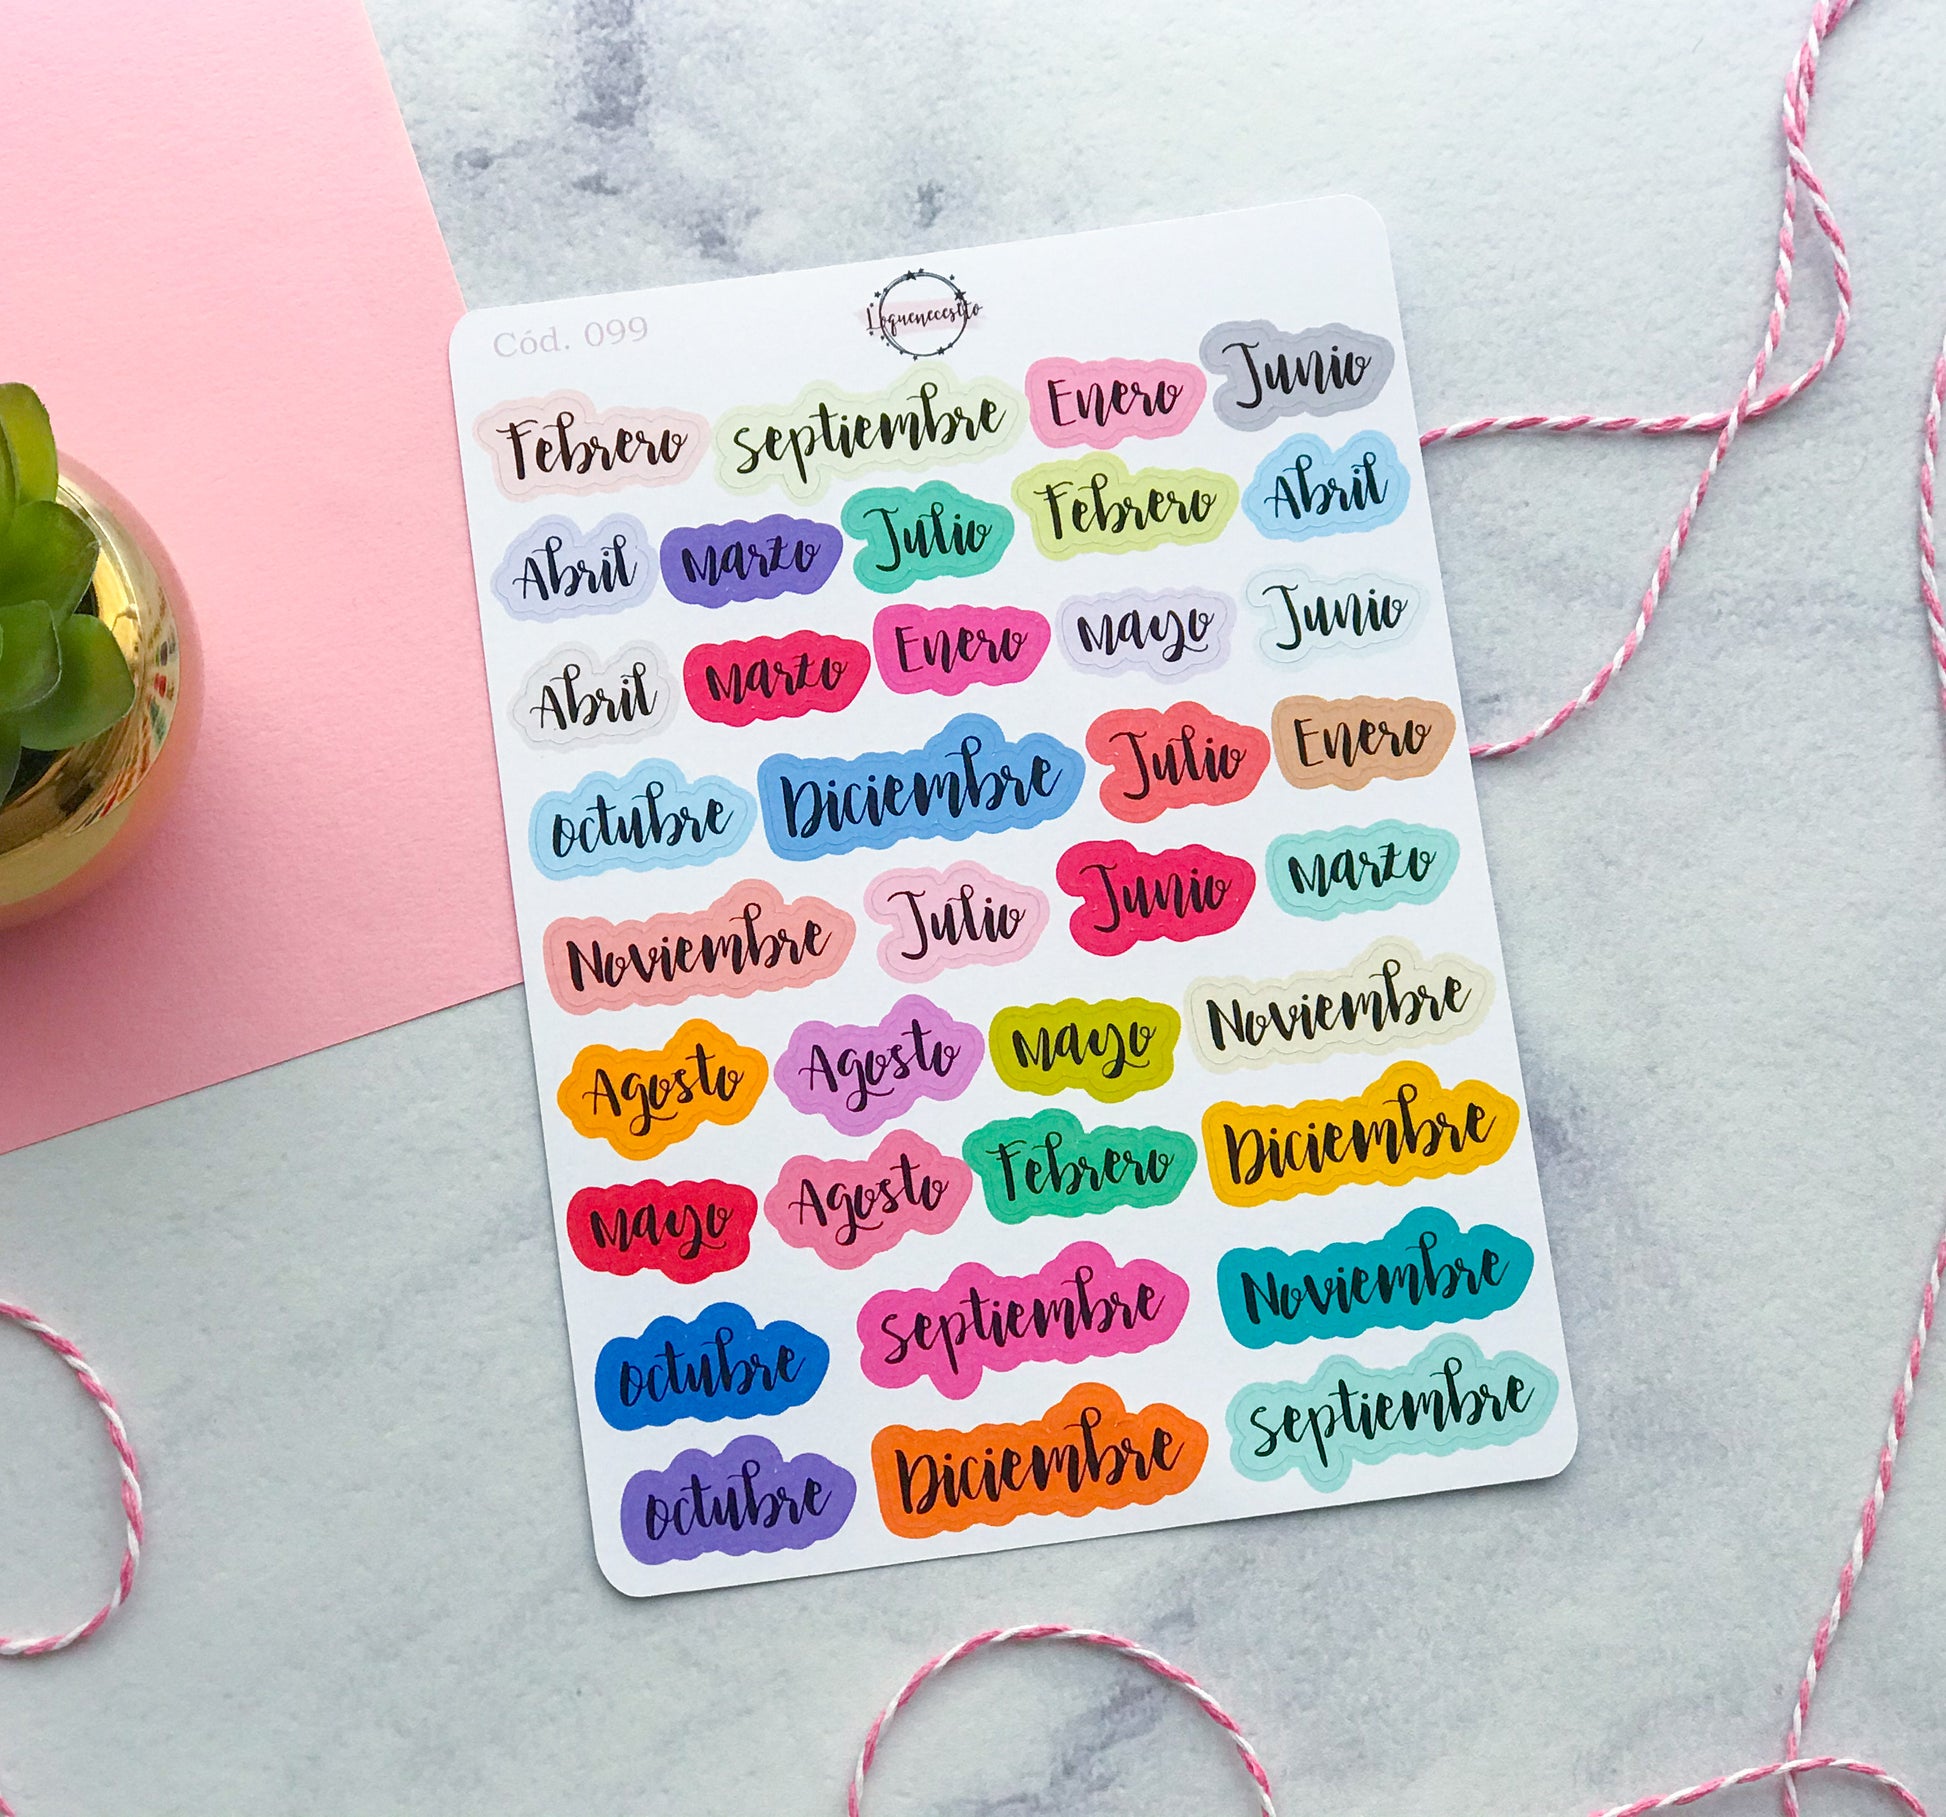 Cód. 099
Loquenecesito
Febrero septiembre Enero Junio
Abril marzo Julio Febrero Abril
Abril marzo Enero mayo Junio
octubre Diciembre Julio Enero
Noviembre Julio Junio marzo
Agosto Agosto mayo Noviembre
mayo Agosto Febrero Diciembre
octubre septiembre Noviembre
octubre Diciembre septiembre